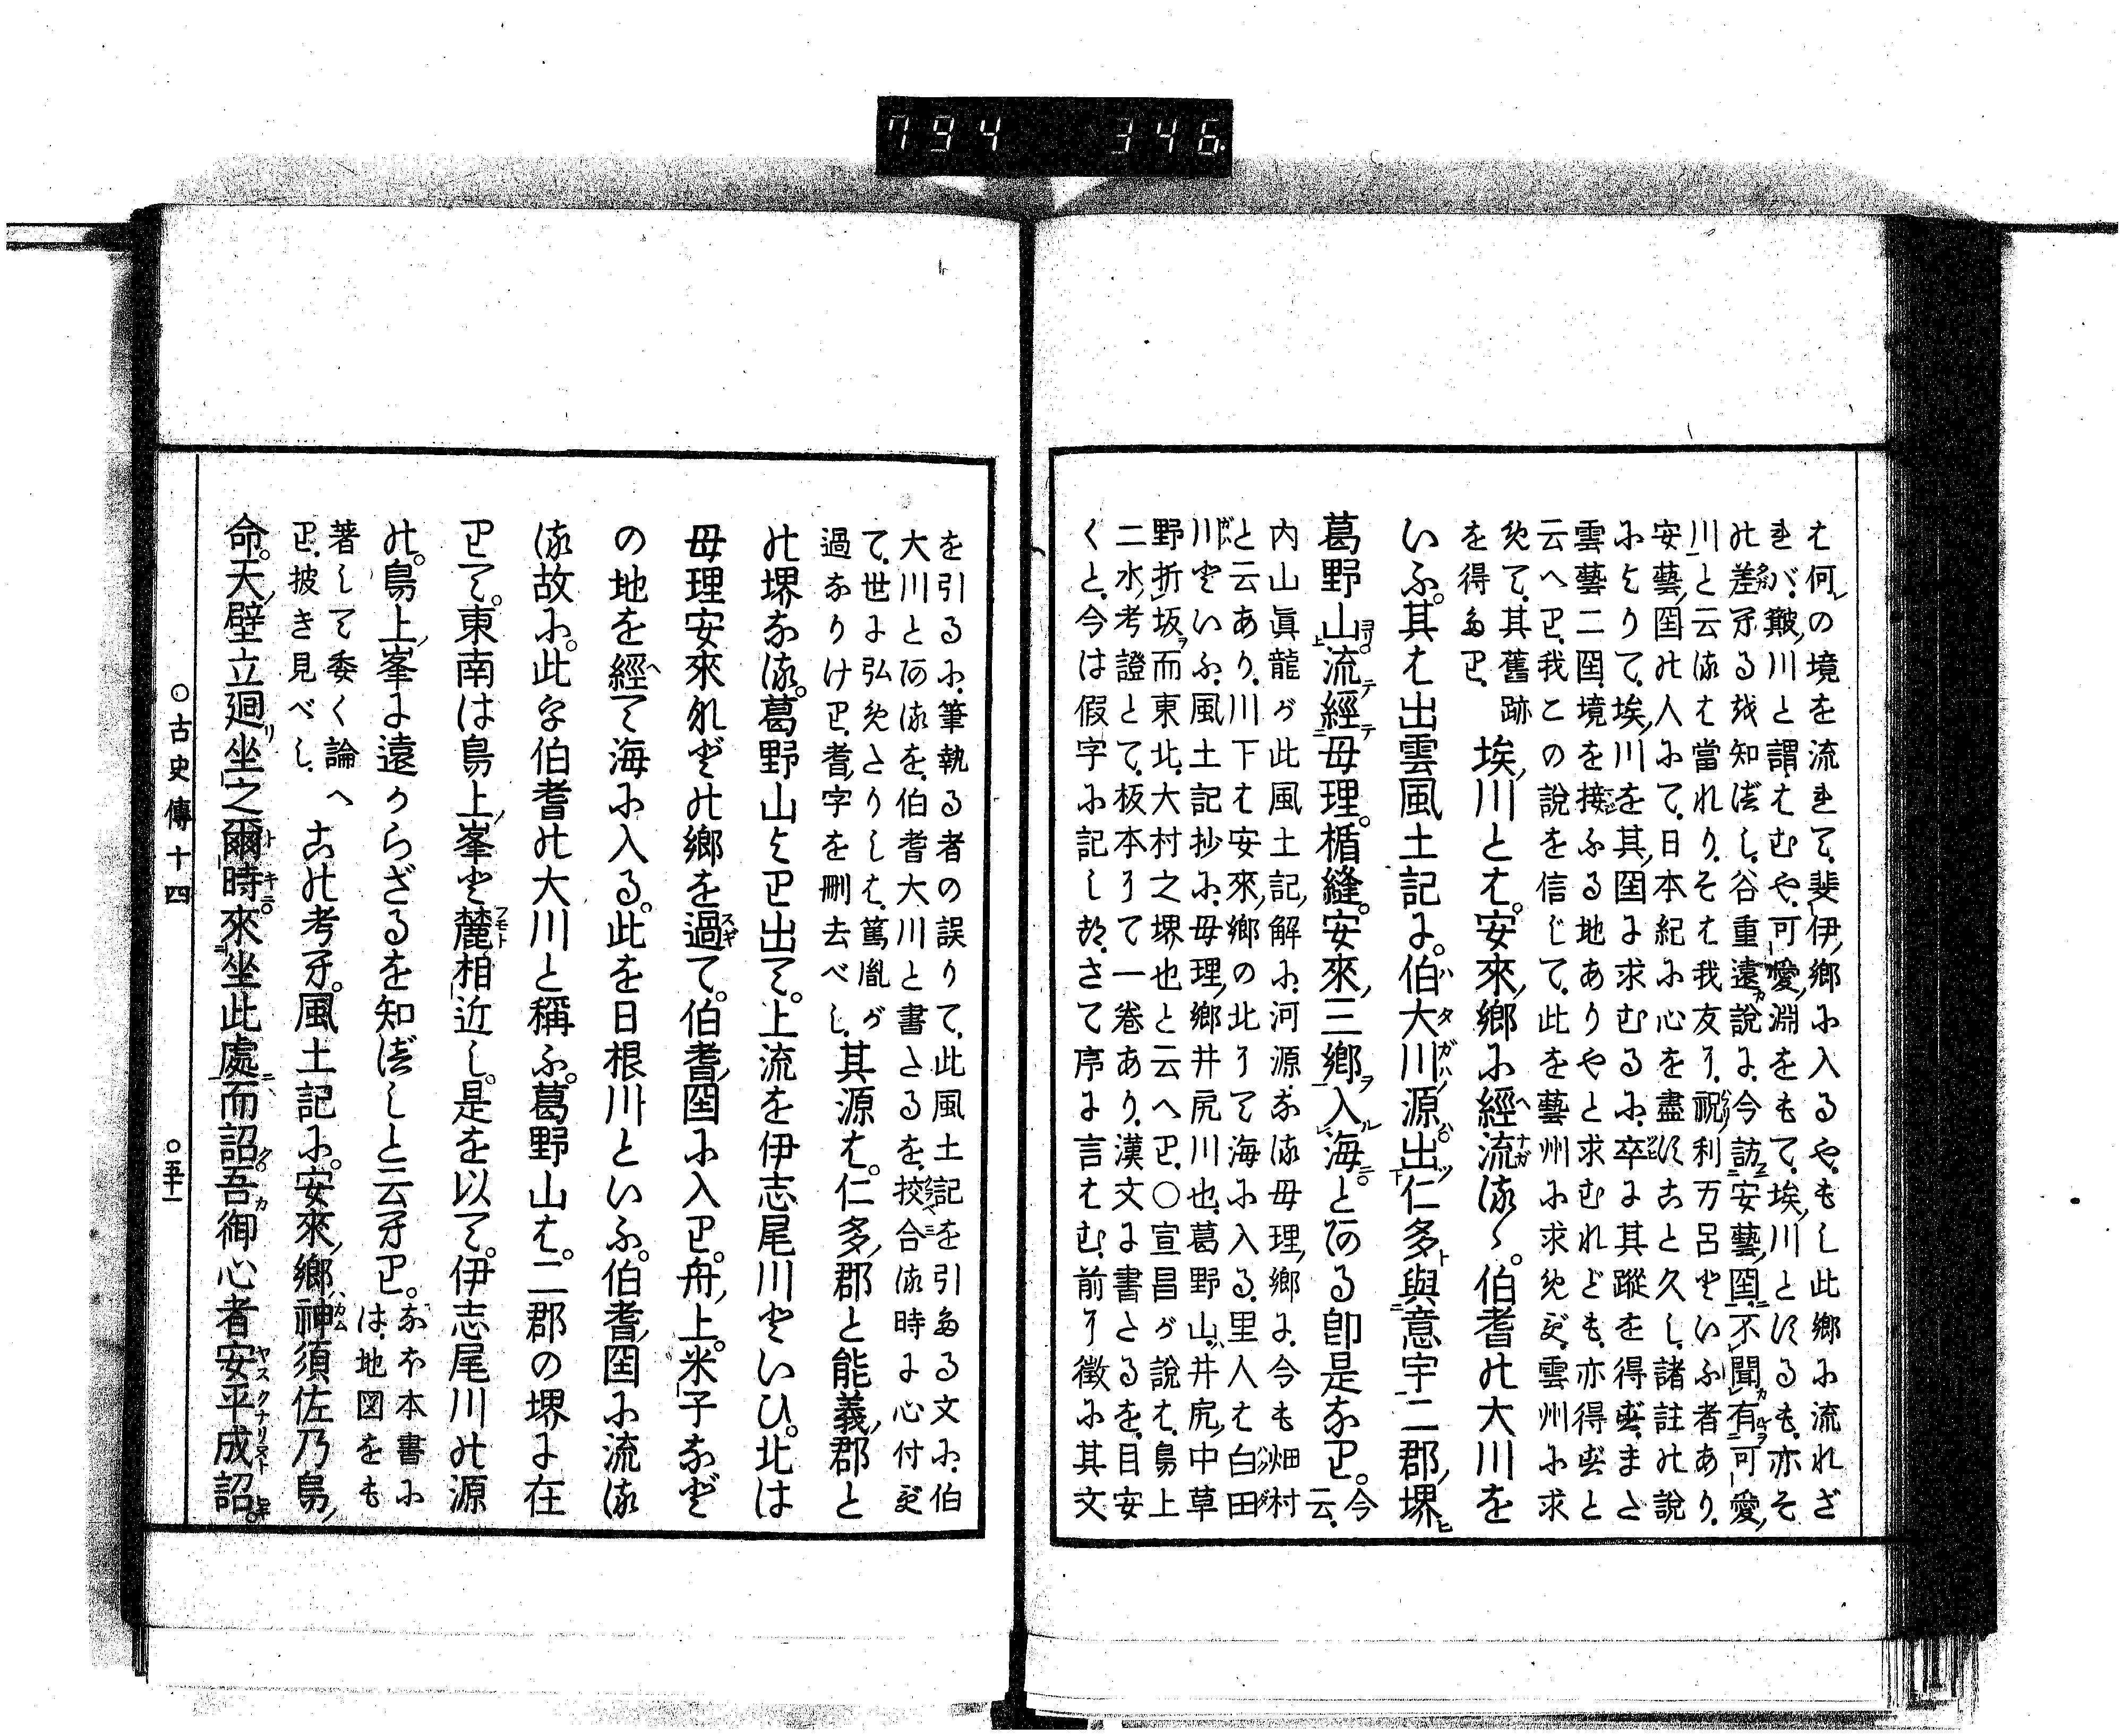 794 346
は何の境を流れて、斐伊ノ郷に入るや、もし此郷に流れざ
れバ、簸ノ川と謂はむや、可愛ノ淵をもて、埃ノ川とするも、亦そ
の差へる哉知べし、谷重遠ガ説に、今訪安藝ノ国、不聞有可愛ノ
川と云るは當れり、そは我友に、祝利万呂といふ者あり、
安藝ノ国の人にて、日本紀に心を盡すこと久し、諸註の説
によりて、埃ノ川を其ノ国に求むるに、卒に其蹤を得ず、まさ
雲藝二国境を接ふる地ありやと求むれども、亦得ずと
云へり、我この説を信じて、此を藝州に求めず、雲州に求
めて、其舊跡
を得たり、
埃ノ川とは。安來ノ郷に經流る〻。伯耆の大川を
いふ。其は出雲風土記に。伯大川源出仁多與意宇二郡ノ堺
葛野山。流經母理。楯縫。安來ノ三郷入海。とある即是なり。
今云、
内山眞龍が此風土記ノ解に、河源なる母理ノ郷に、今も畑村
と云あり、川下は安來ノ郷の北にて海に入る、里人は白田
川といふ、風土記抄に、母理ノ郷井尻川也、葛野山ハ井尻ノ中草
野折坂ヲ而東北、大村之堺也と云へり、○宣昌が説は、鳥上
二水ノ考證とて、板本にて一巻あり、漢文に書さるを、目安
くと、今は假字に記しむ、さて序に言はむ、前に徴に其文
を引るに、筆執る者の誤りて、此風土記を引たる文に、伯
大川とあるを、伯耆大川と書さるを、挍合る時に心付ず
て、世に弘めさりしは、篤胤が
過なりけり、耆ノ字を刪去べし、
其源は。仁多ノ郡と能義ノ郡と
の堺なる。葛野山より出て。上流を伊志尾川といひ。北は
母理安來などの郷を過て。伯耆ノ国に入り。舟ノ上。米子など
の地を經て海に入る。此を日根川といふ。伯耆ノ国に流る
る故に。此を伯耆の大川と稱ふ。葛野山は。二郡の堺に在
りて。東南は鳥上ノ峯と麓相近し。是を以て。伊志尾川の源
の。鳥上ノ峯に遠からざるを知べしと云へり。
なほ本書に
は、地図をも
著して委く論へ
り、披き見べし、
この考へ。風土記に。安來ノ郷ハ神須佐乃烏ノ
命。天ノ壁立廻坐之爾時來坐此處而詔吾御心者安平成詔。
○古史傳十四 ○五十一